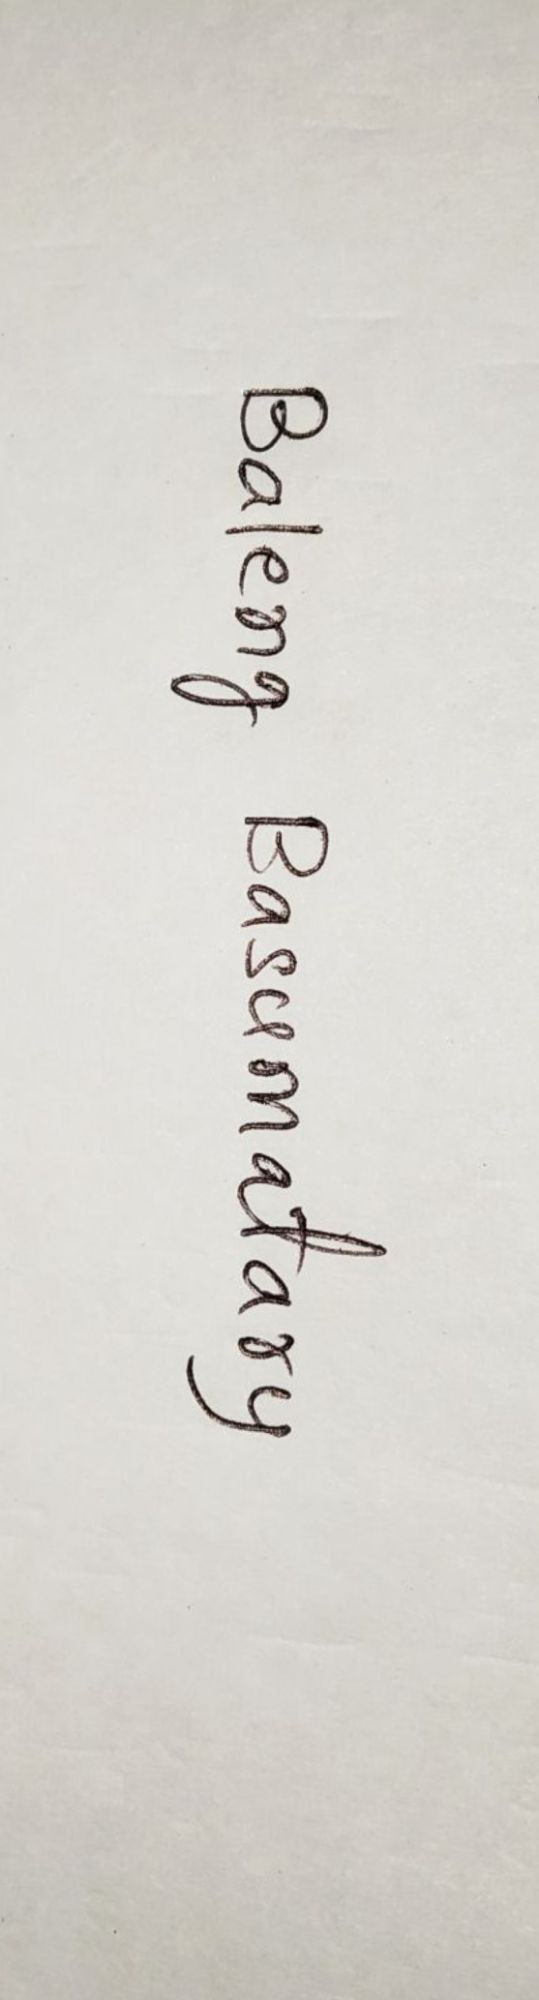 Baleng Basumatary